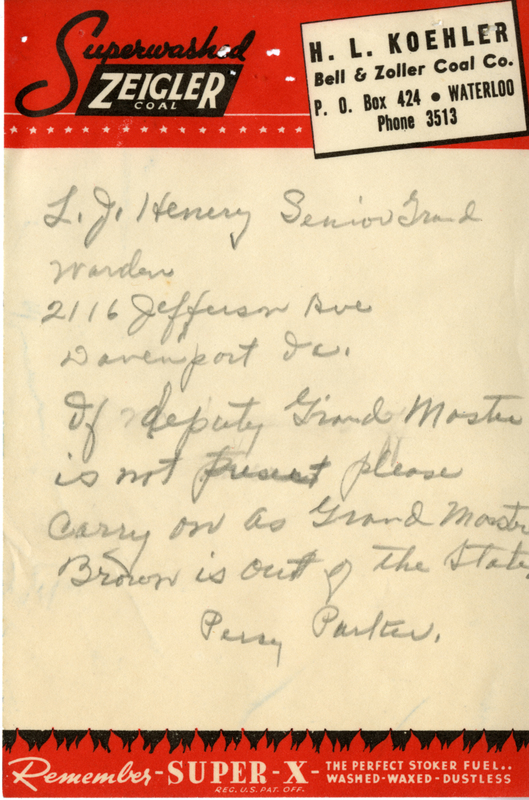 Superwashed
ZEIGLER
COAL
H. L. KOEHLER
Bell & Zoller Coal Co.
P. O. Box 424 • WATERLOO
Phone 3513
L. J. Henery Senior Grand
Warden
2116 Jefferson Ave
Davenport Ia.
If deputy Grand Master
is not present please
carry on as Grand Master
Brown is out of the State
Percy Parker.
Remember-SUPER-X-THE PERFECT STOKER FUEL..
WASHED-WAXED-DUSTLESS
REG. U.S. PAT. OFF.